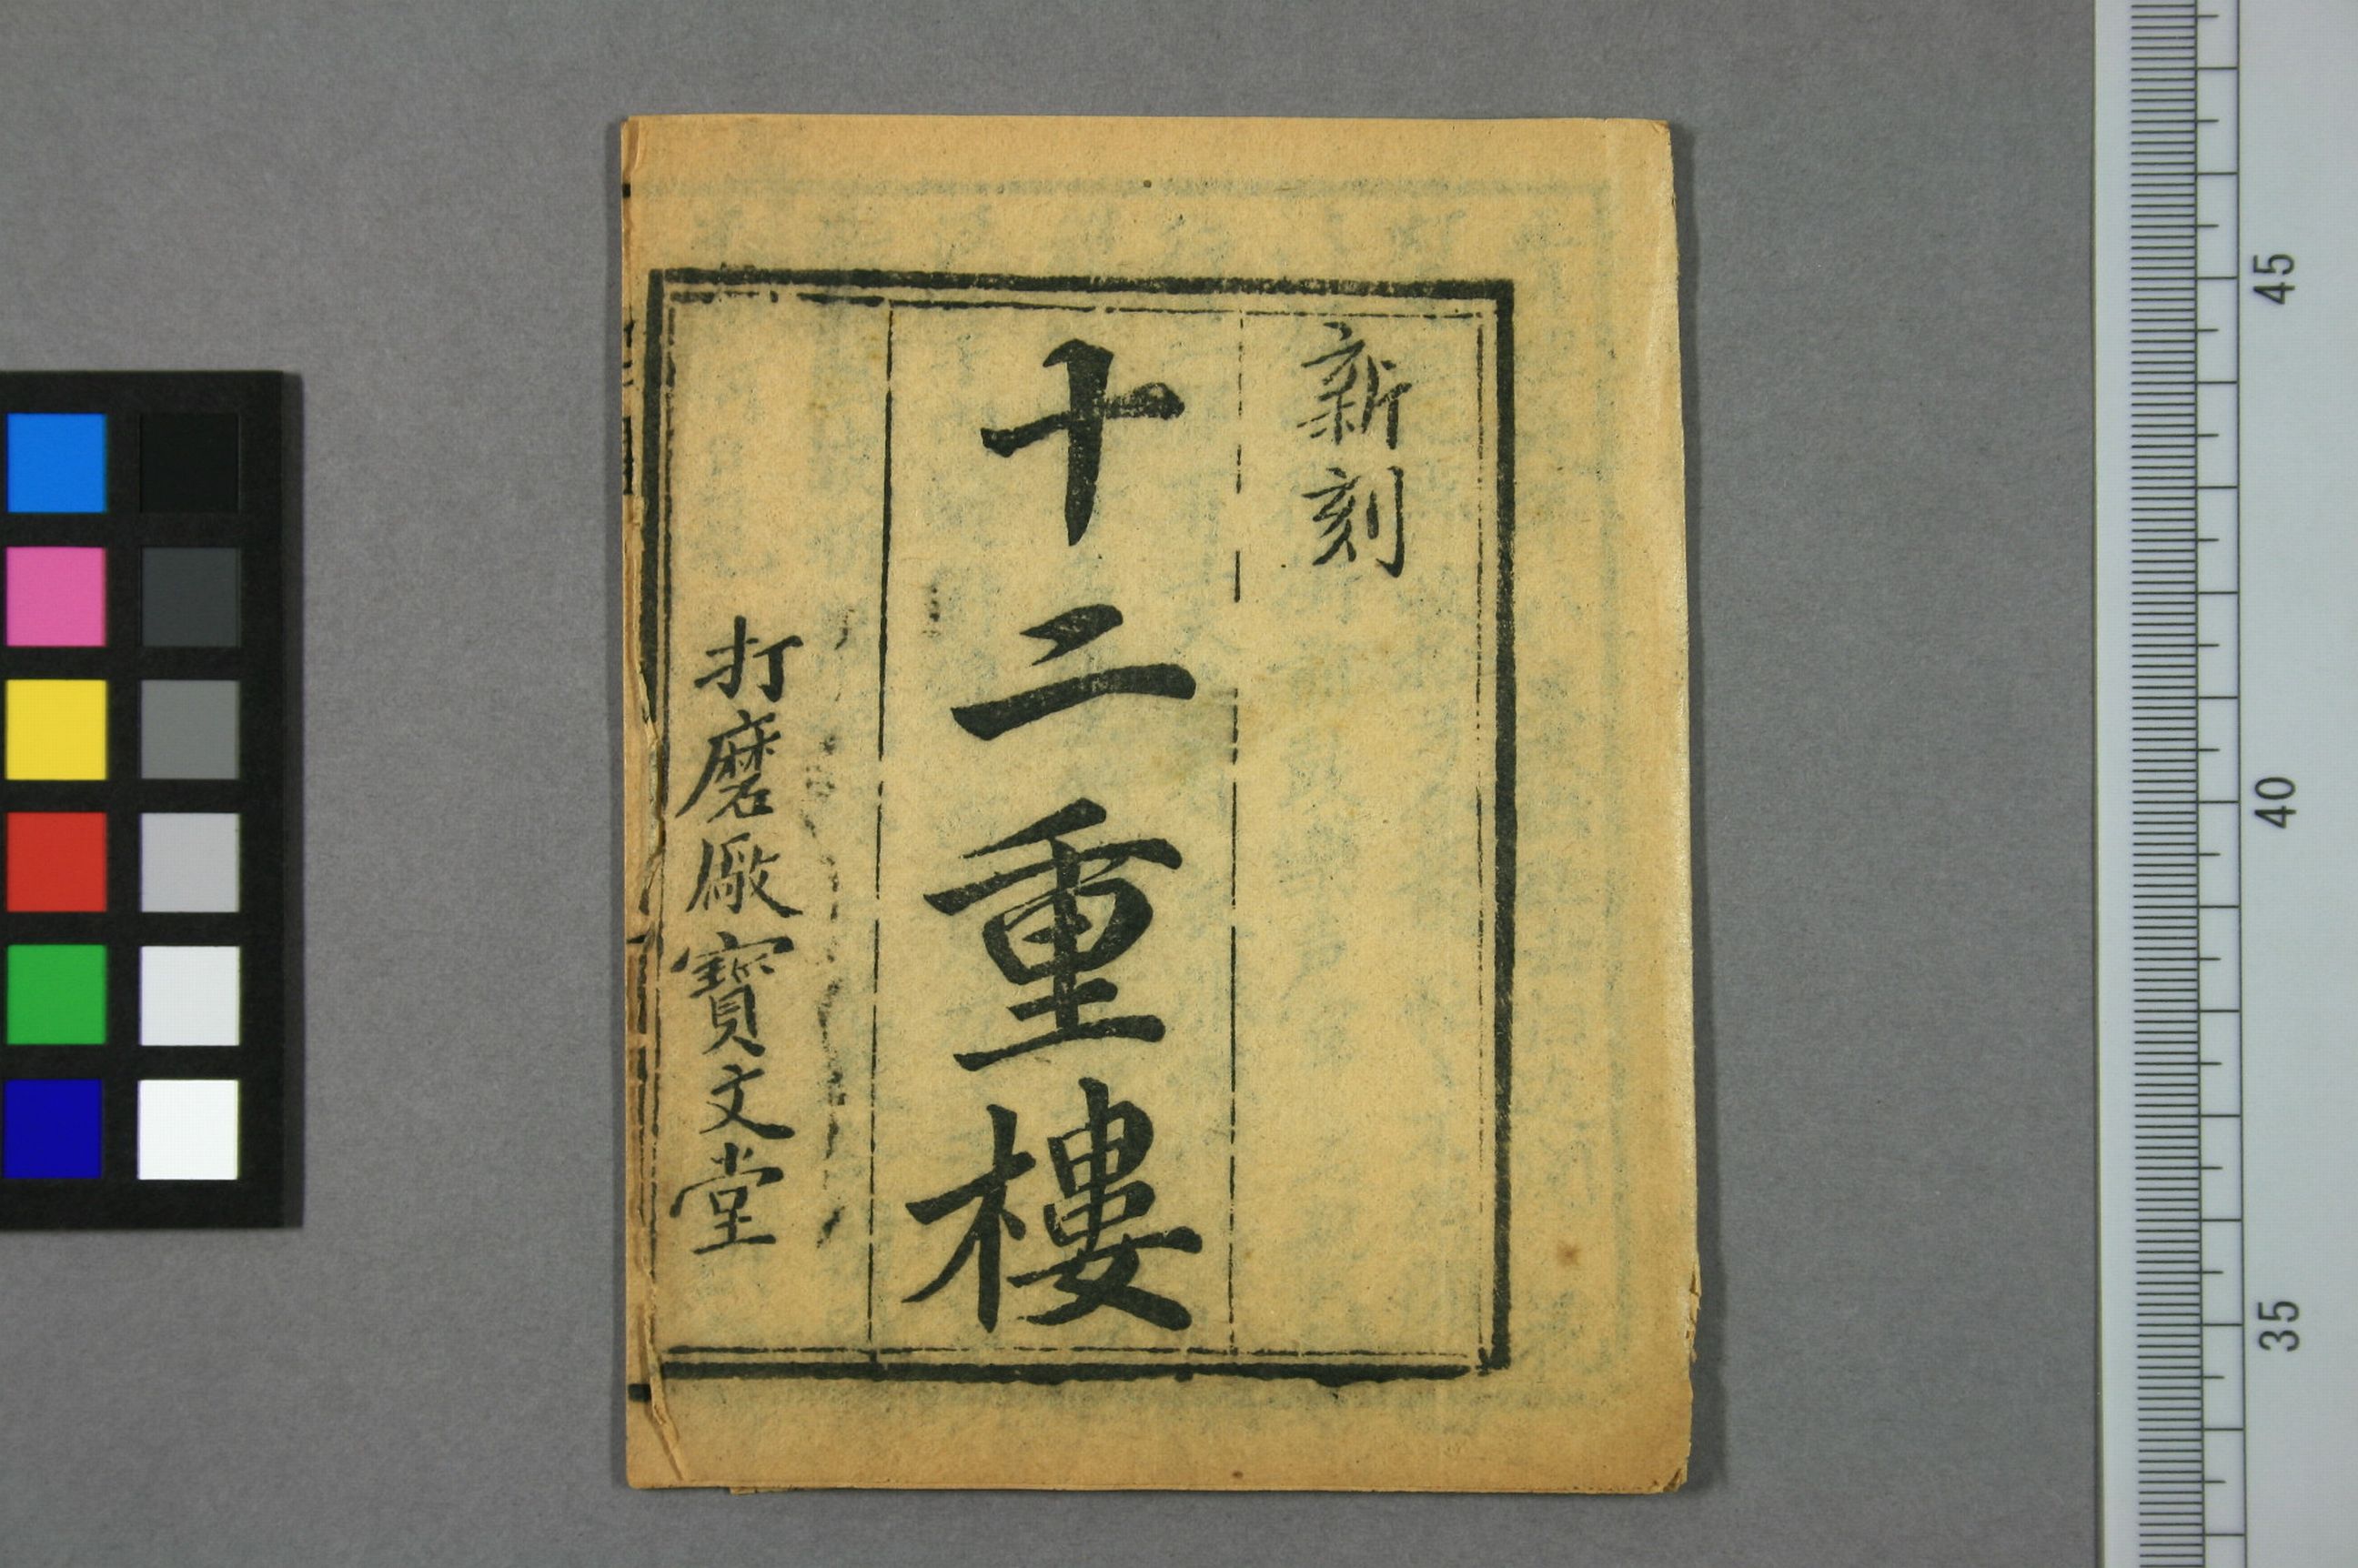 新刻
十二重樓
打磨厰寶文堂
45
40
35